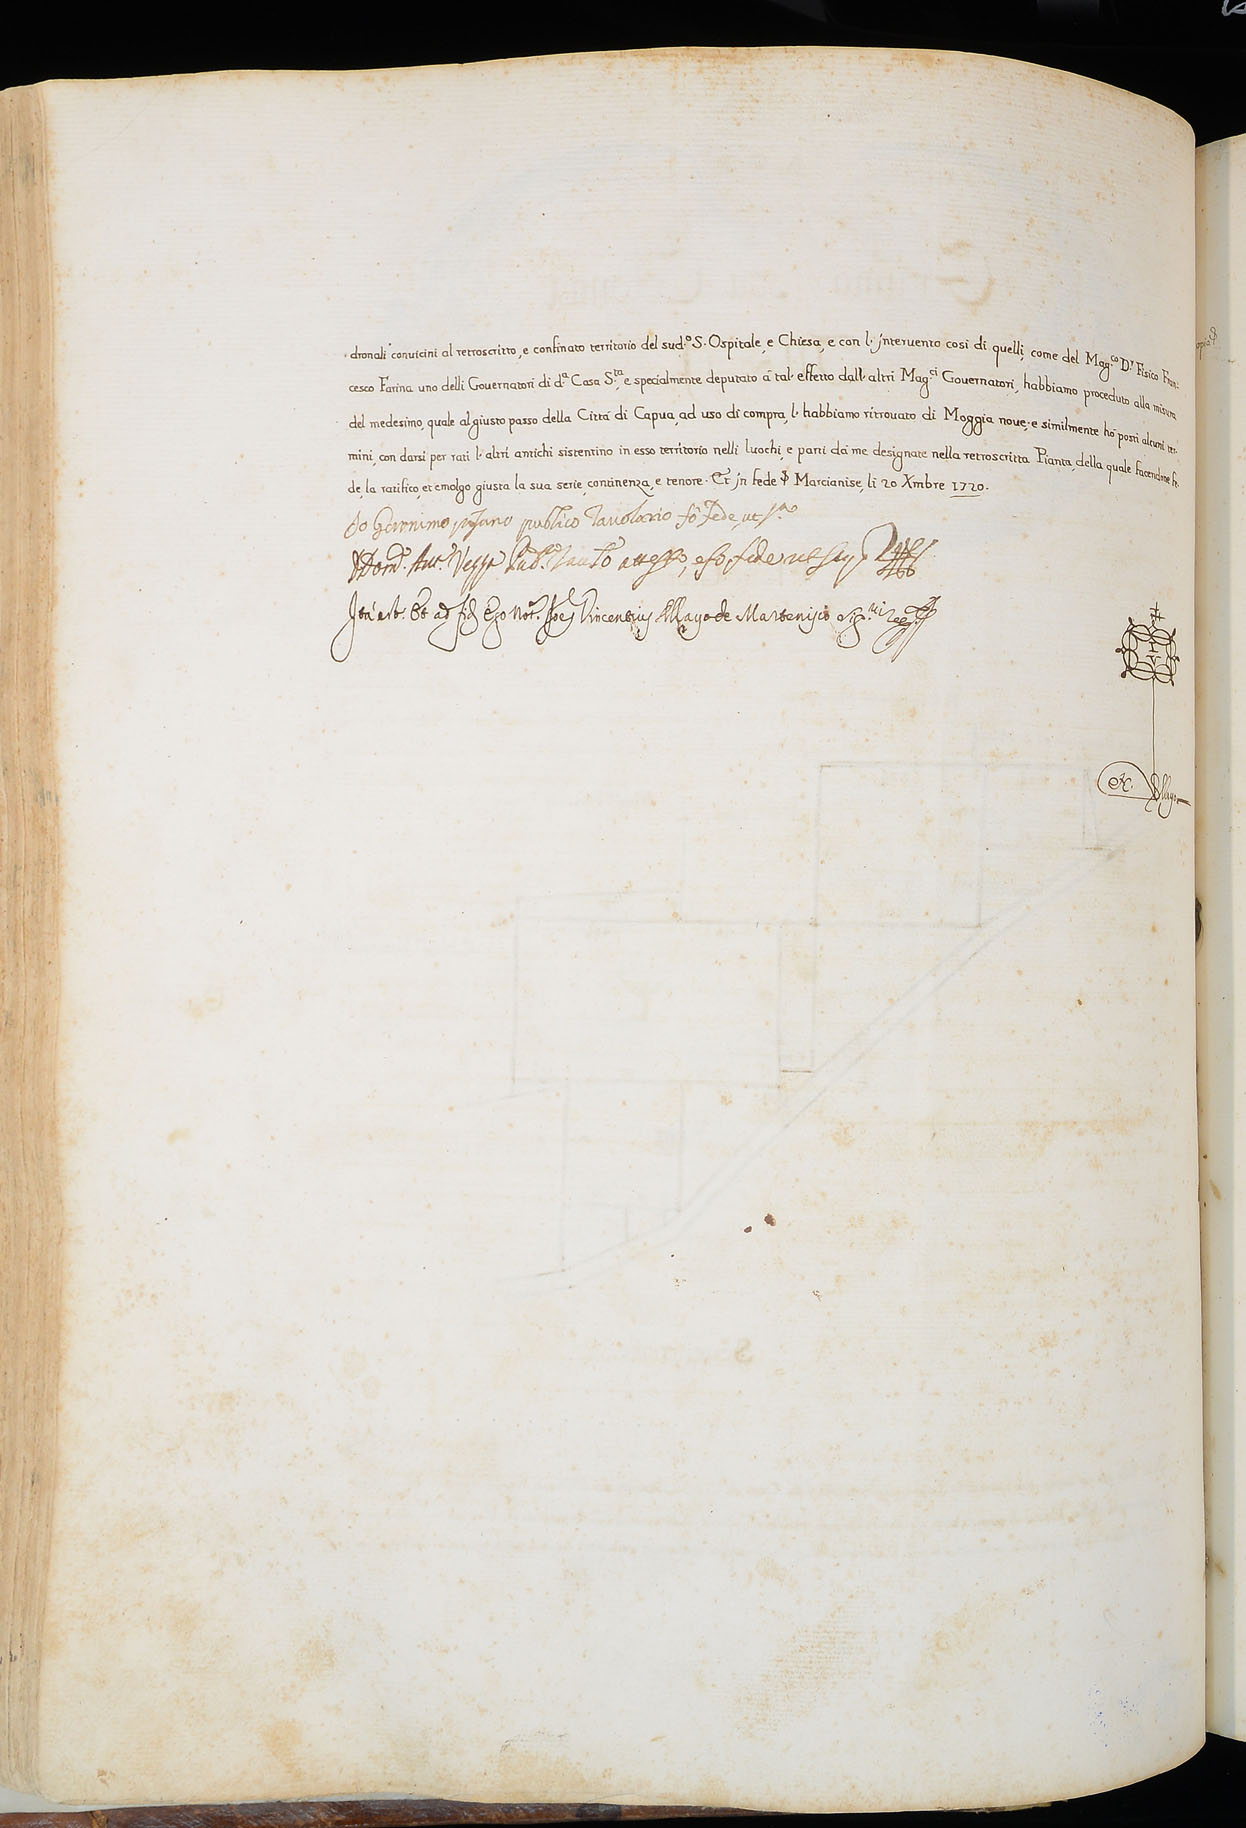 dronali convicini al retroscritto, e confinato territorio del sud.º S. Ospitale, e Chiesa, e con l. intervento cosi di quelli, come del Mag.co D.r Fisico Fran:
cesco Farina uno delli Governatori di d.a Casa S.ta, e specialmente deputato á tal effetto dall. altri Mag.ci Governatori, habbiamo proceduto alla misura
del medesimo, quale al giusto passo della Cittá di Capua, ad uso di compra, l. habbiamo ritrovato di Moggia nove; e similmente hó posti alcuni ter:
mini, con darsi per rati l. altri antichi sistentino in esso territorio nelli luochi, e parti dá me designate nella retroscritta Pianta, della quale facendone fe:
de, la ratifico, et emolgo giusta la sua serie, continenza, e tenore. Et in fede Marcianise, li 20 Xmbre 1720.
Io Geronimo publico Tavolario fó fede, ut s.a
attesto, e fo fede ut
Ita est. Et ad fid. Ego Not.s Vincentius de Martenisio